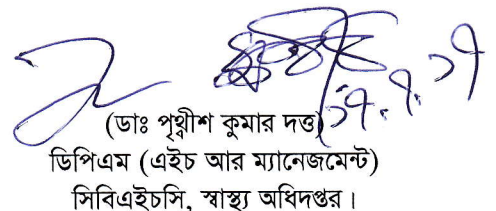 ১৭.৭.১৭
(ডাঃ পৃথ্বীশ কুমার দত্ত)
ডিপিএম (এইচ আর ম্যানেজমেন্ট)
সিবিএইচসি, স্বাস্থ্য অধিদপ্তর।